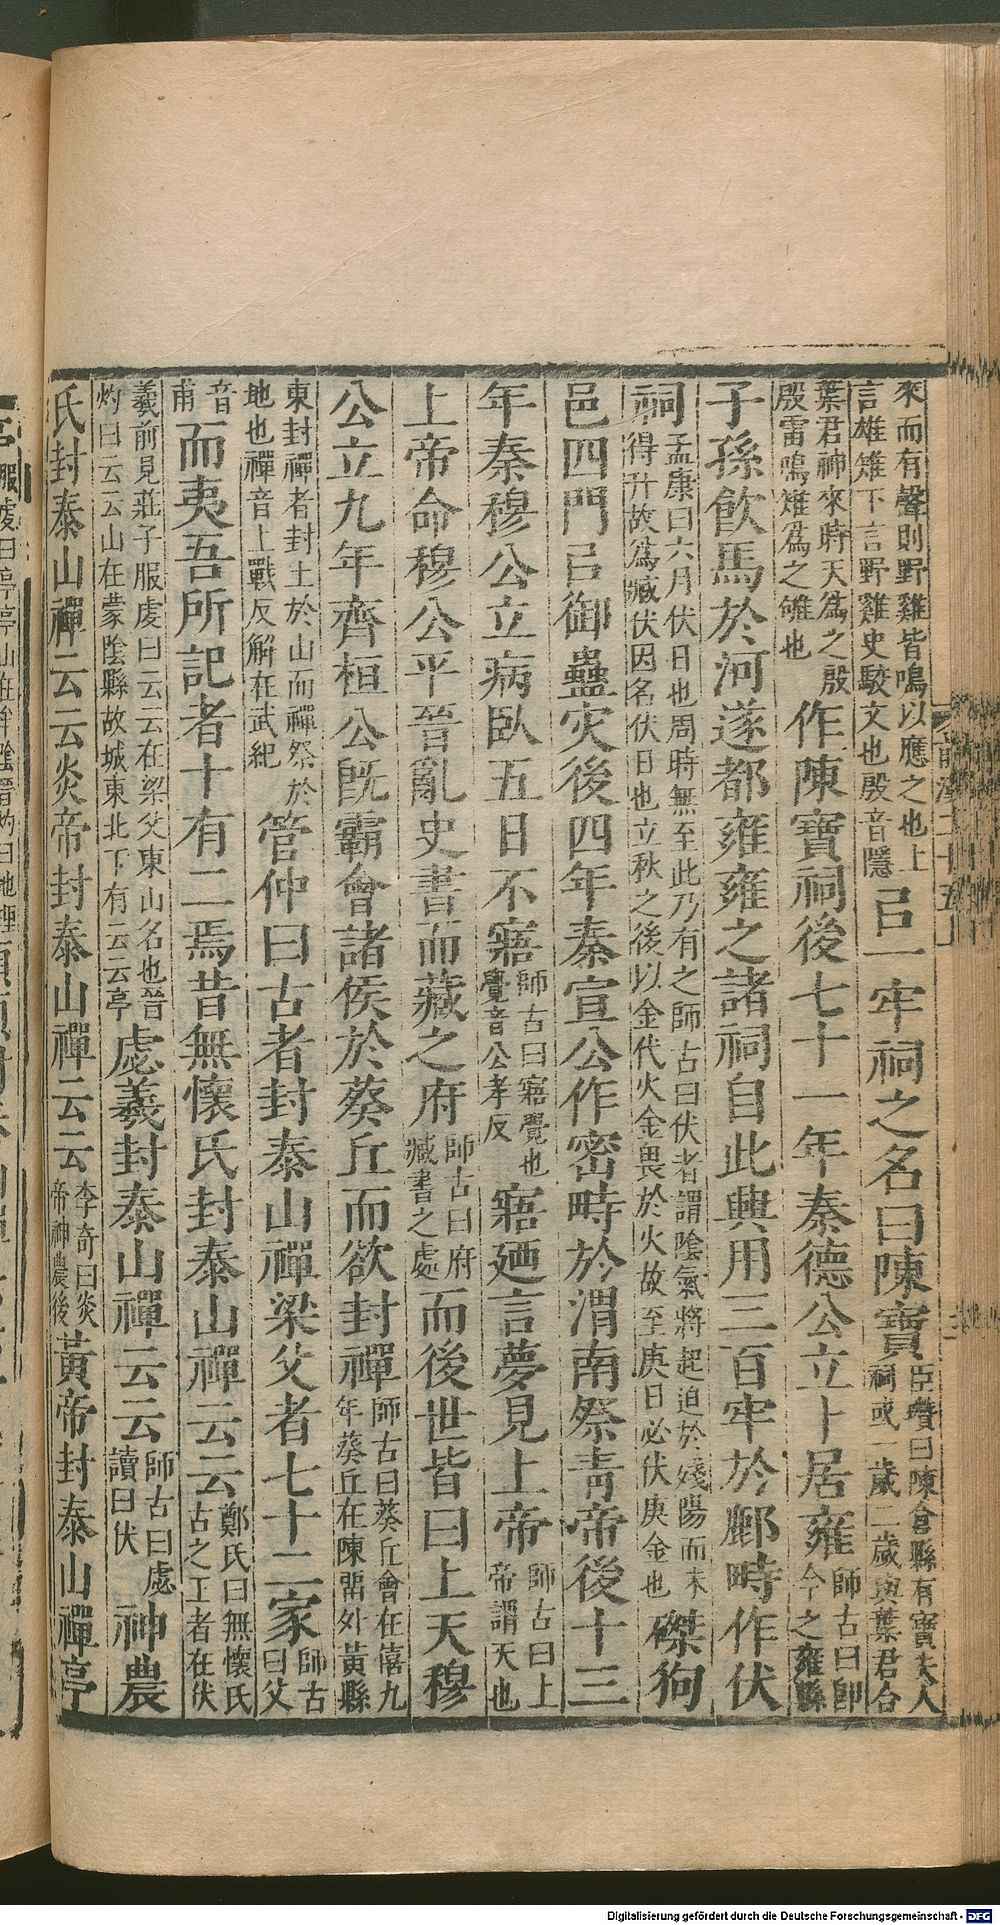 來而有聲則野雞皆鳴以應之也上
言雄雉下言野雞史駮文也殷音隱
㠯一牢祠之名曰陳寶
臣瓚曰陳倉縣有寶夫人
祠或一歲二歲與葉君合
葉君神來時天爲之殷
殷雷鳴雉爲之雊也
作陳寶祠後七十一年秦德公立卜居雍
師古曰卽
今之雍縣
子孫飮馬於河遂都雍雍之諸祠自此興用三百牢於鄜畤作伏
祠
孟康曰六月伏日也周時無至此乃有之師古曰伏者謂陰氣將起迫於殘陽而未
得升故爲臧伏因名伏日也立秋之後以金代火金畏於火故至庚日必伏庚金也
磔狗
邑四門㠯御蠱灾後四年秦宣公作密畤於渭南祭靑帝後十三
年秦穆公立病臥五日不寤
師古曰寤覺也
覺音公孝反
寤廼言夢見上帝
師古曰上
帝謂天也
上帝命穆公平晉亂史書而藏之府
師古曰府
臧書之處
而後世皆曰上天穆
公立九年齊桓公旣霸會諸侯於葵丘而欲封禪
師古曰葵丘會在僖九
年葵丘在陳畱外黃縣
東封禪者封土於山而禪祭於
地也禪音上戰反解在武紀
管仲曰古者封泰山禪梁父者七十二家
師古
曰父
音
甫
而夷吾所記者十有二焉昔無懷氏封泰山禪云云
鄭氏曰無懷氏
古之王者在伏
羲前見莊子服虔曰云云在梁父東山名也晉
灼曰云云山在蒙陰縣故城東北下有云云亭
虙羲封泰山禪云云
師古曰虙
讀曰伏
神農
氏封泰山禪云云炎帝封泰山禪云云
李奇曰炎
帝神農後
黃帝封泰山禪亭
Digitalisierung gefördert durch die Deutsche Forschungsgemeinschaft - DFG